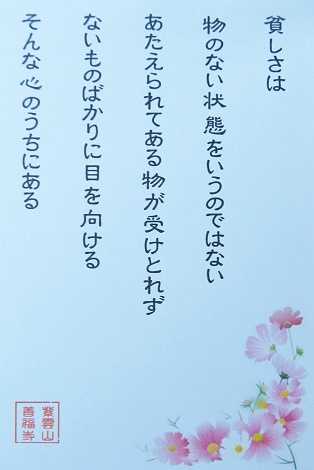 貧しさは
物のない状態をいうのではない
あたえられてある物が受けとれず
ないものばかりに目を向ける
そんな心のうちにある
紫雲山
善福寺